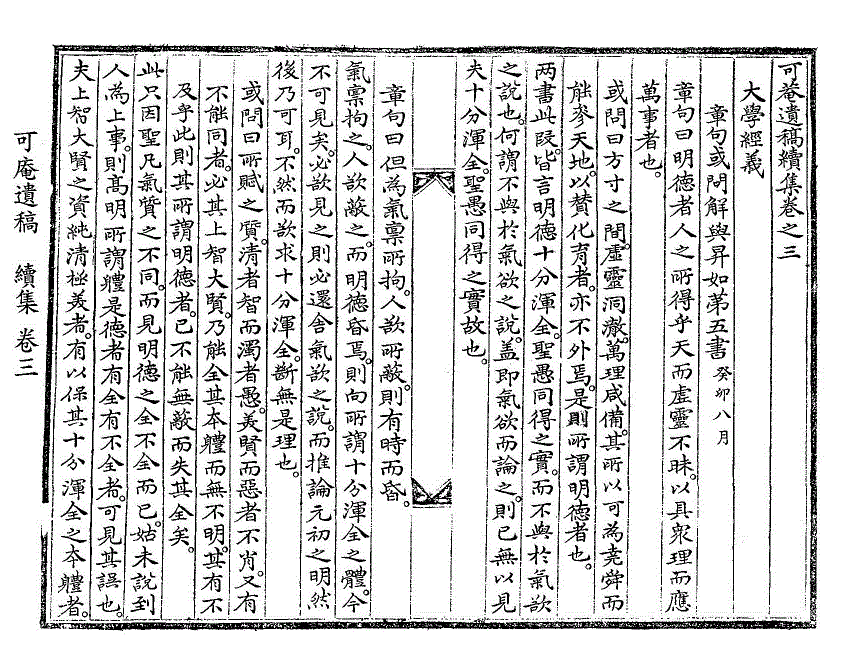 可菴遺稿續集卷之三
大學經義
章句或問解與昇如第五書 癸卯八月
章句曰明德者人之所得乎天而虛靈不昧。以具衆理而應
萬事者也。
或問曰方寸之間。虛靈洞澈。萬理咸備。其所以可為堯舜而
能參天地。以贊化育者。亦不外焉。是則所謂明德者也。
两書此段。皆言明德十分渾全。聖愚同得之實。而不與於氣欲
之說也。何謂不與於氣欲之說。盖即氣欲而論之。則已無以見
夫十分渾全。聖愚同得之實故也。
章句曰但為氣禀所拘。人欲所蔽。則有時而昏。
氣禀拘之。人欲蔽之。而明德昏焉。則向所謂十分渾全之體。今
不可見矣。必欲見之則必還舍氣欲之說。而推論元初之明然
後乃可耳。不然而欲求十分渾全。斷無是理也。
或問曰所賦之質。清者智而濁者愚。美賢而惡者不肖。又有
不能同者。必其上智大賢。乃能全其本體而無不明。其有不
及乎此則其所謂明德者。已不能無蔽而失其全矣。
此只因聖凡氣質之不同。而見明德之全不全而已。姑未說到
人為上事。則高明所謂體是德者有全有不全者。可見其誤也。
夫上智大賢之資純清極美者。有以保其十分渾全之本體者。
可庵遺稿 續集 卷三